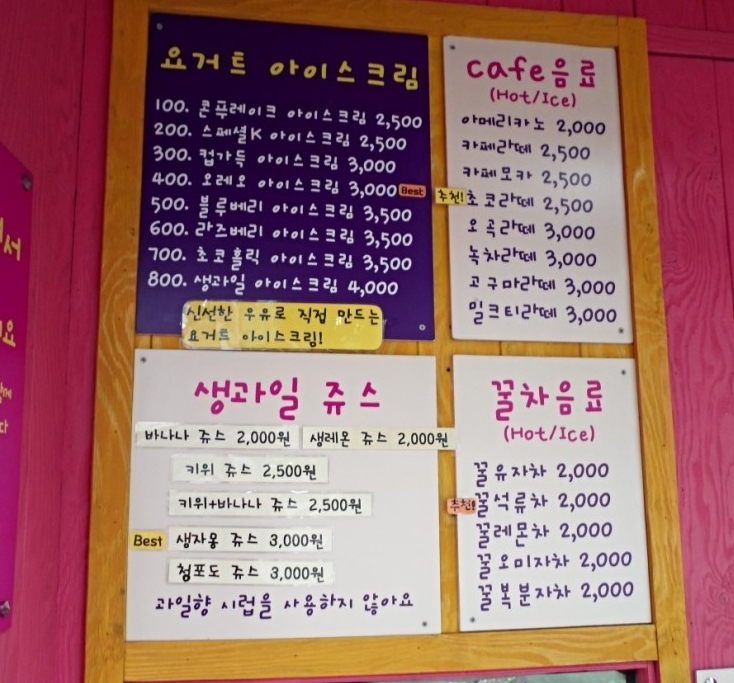 요거트 아이스크림
100. 콘푸레이크 아이스크림 2,500
200. 스페셜K 아이스크림 2,500
300. 컵가득 아이스크림 3,000
400. 오레오 아이스크림 3,000 Best
500. 블루베리 아이스크림 3,500
600. 라즈베리 아이스크림 3,500
700. 초코홀릭 아이스크림 3,500
800. 생과일 아이스크림 4,000
신선한 우유로 직접 만드는
요거트 아이스크림!
cafe음료
(Hot/Ice)
아메리카노 2,000
카페라떼 2,500
카페모카 2,500
추천! 초코라떼 2,500
오곡라떼 3,000
녹차라떼 3,000
고구마라떼 3,000
밀크티라떼 3,000
생과일 쥬스
바나나 쥬스 2,000원
생레몬 쥬스 2,000원
키위 쥬스 2,500원
키위+바나나 쥬스 2,500원
Best 생자몽 쥬스 3,000원
청포도 쥬스 3,000원
과일향 시럽을 사용하지 않아요
꿀차음료
(Hot/Ice)
꿀유자차 2,000
추천! 꿀석류차 2,000
꿀레몬차 2,000
꿀오미자차 2,000
꿀복분자차 2,000